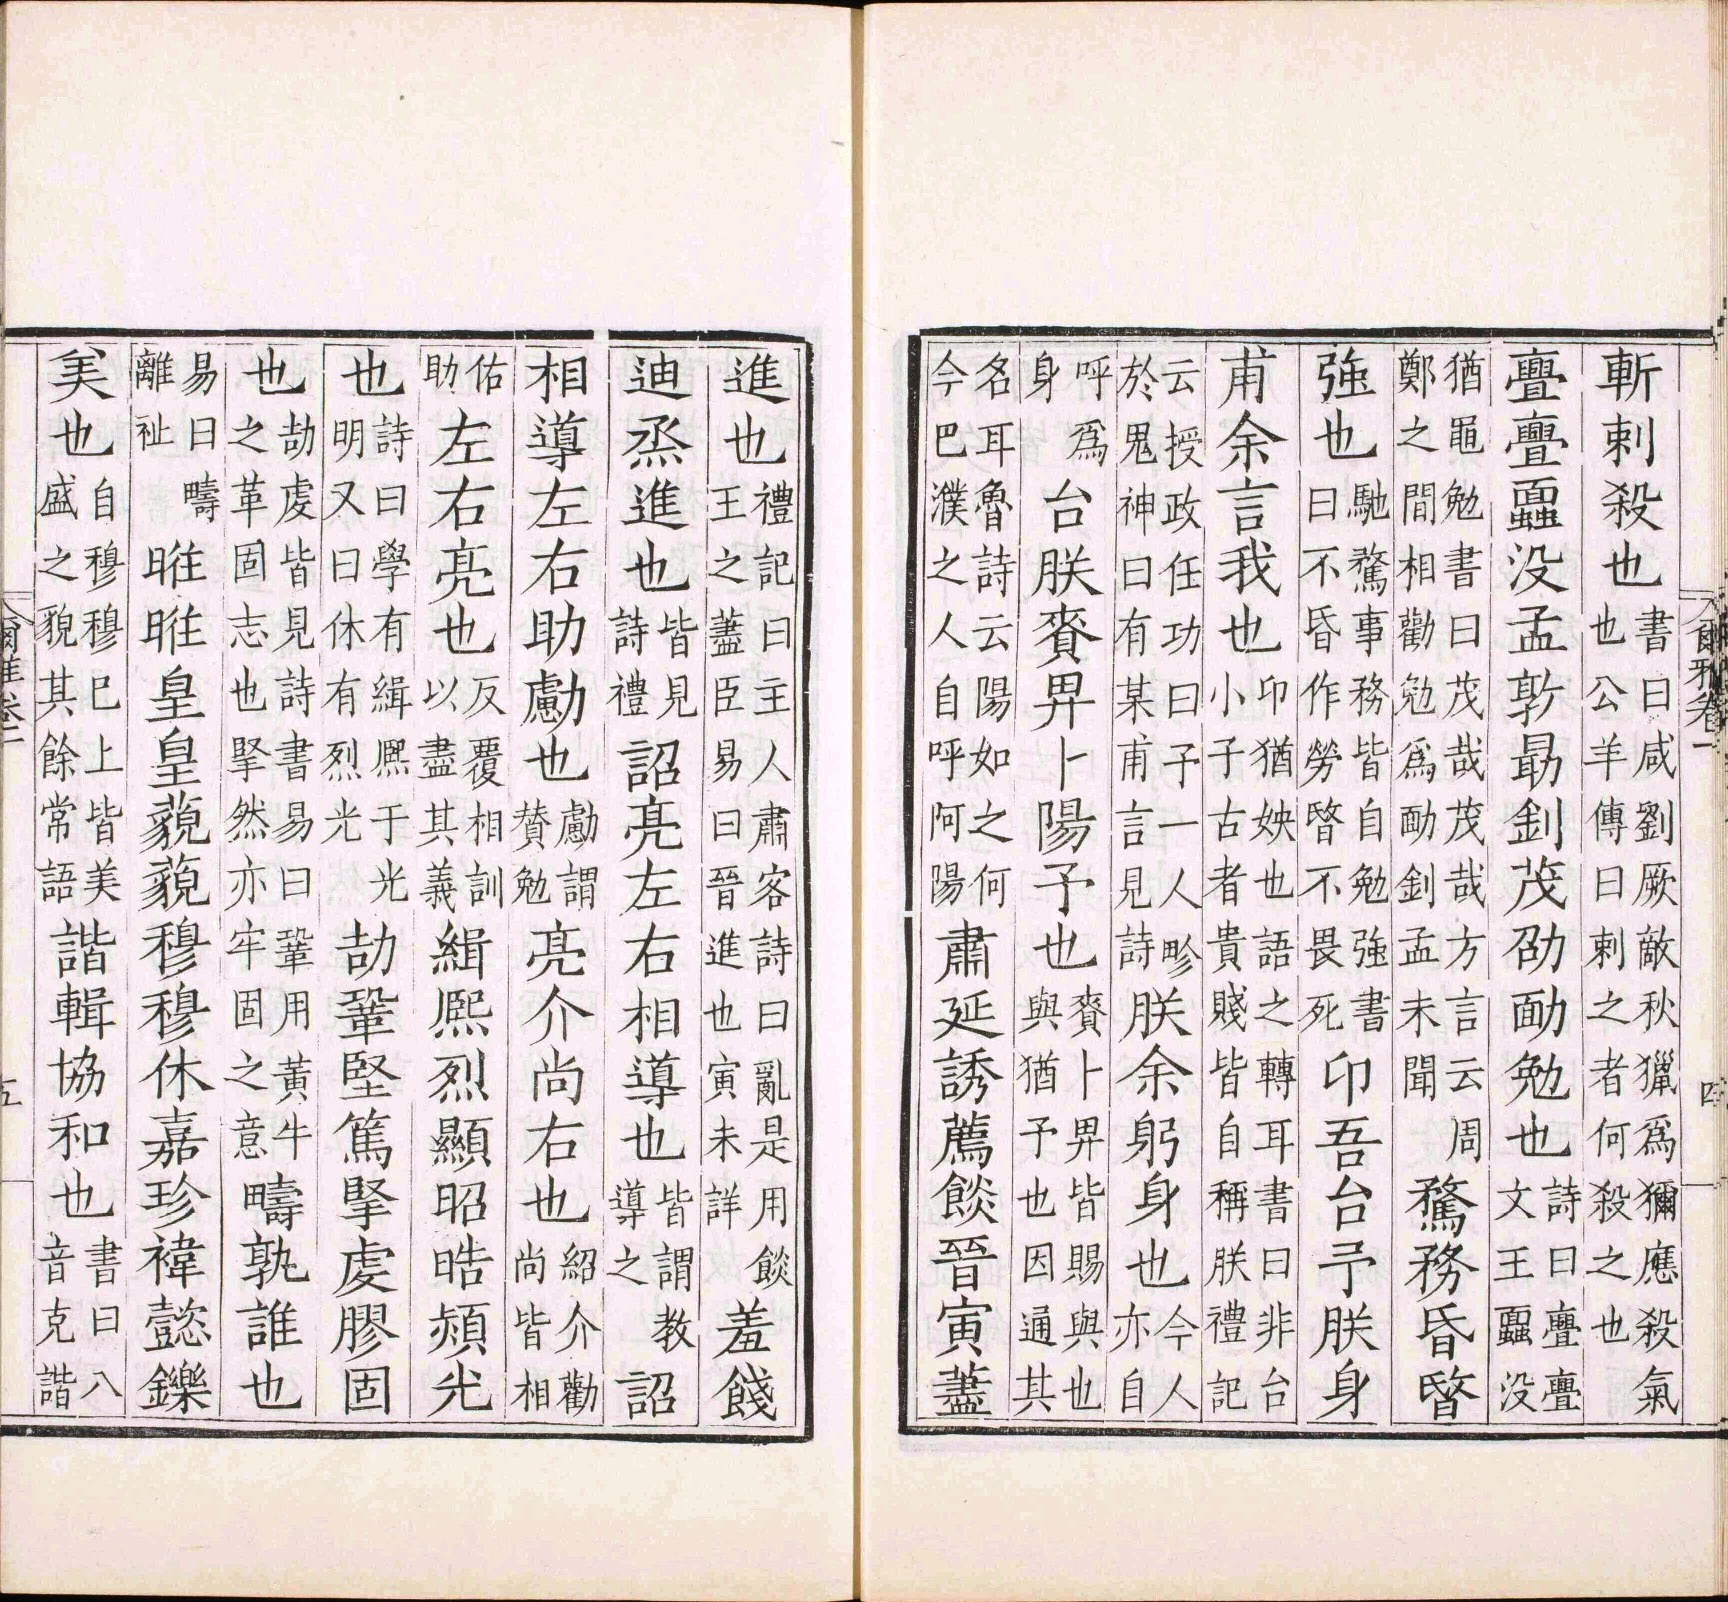 爾雅卷一 四
斬刺殺也書曰咸劉厥敵秋獵爲獮應殺氣也公羊傳曰刺之者何殺之也
亹亹蠠没孟敦勗釗茂劭勔勉也詩曰亹亹文王蠠没
猶黽勉書曰茂哉茂哉方言云周鄭之間相勸勉爲勔釗孟未聞騖務昏暋
強也馳騖事務皆自勉強書曰不昏作勞暋不畏死卬吾台予朕身
甫余言我也卬猶姎也語之轉耳書曰非台小子古者貴賤皆自稱朕禮記
云授政任功曰予一人畛於鬼神曰有某甫言見詩朕余躬身也今人亦自
呼爲身台朕賚畀卜陽予也賚卜畀皆賜與也與猶予也因通其
名耳魯詩云陽如之何今巴濮之人自呼阿陽肅延誘薦餤晉寅藎
進也禮記曰主人肅客詩曰亂是用餤王之藎臣易曰晉進也寅未詳羞餞
迪烝進也皆見詩禮詔亮左右相導也皆謂教導之詔
相導左右助勴也勴謂贊勉亮介尚右也紹介勸尚皆相
佑助左右亮也反覆相訓以盡其義緝熙烈顯昭晧熲光
也詩曰學有緝熙于光明又曰休有烈光劼鞏堅篤掔虔膠固
也劼虔皆見詩書易曰鞏用黃牛之革固志也掔然亦牢固之意疇孰誰也
易曰疇離祉暀暀皇皇藐藐穆穆休嘉珍禕懿鑠
美也自穆穆已上皆美盛之貌其餘常語諧輯協和也書曰八音克諧
爾雅卷 五